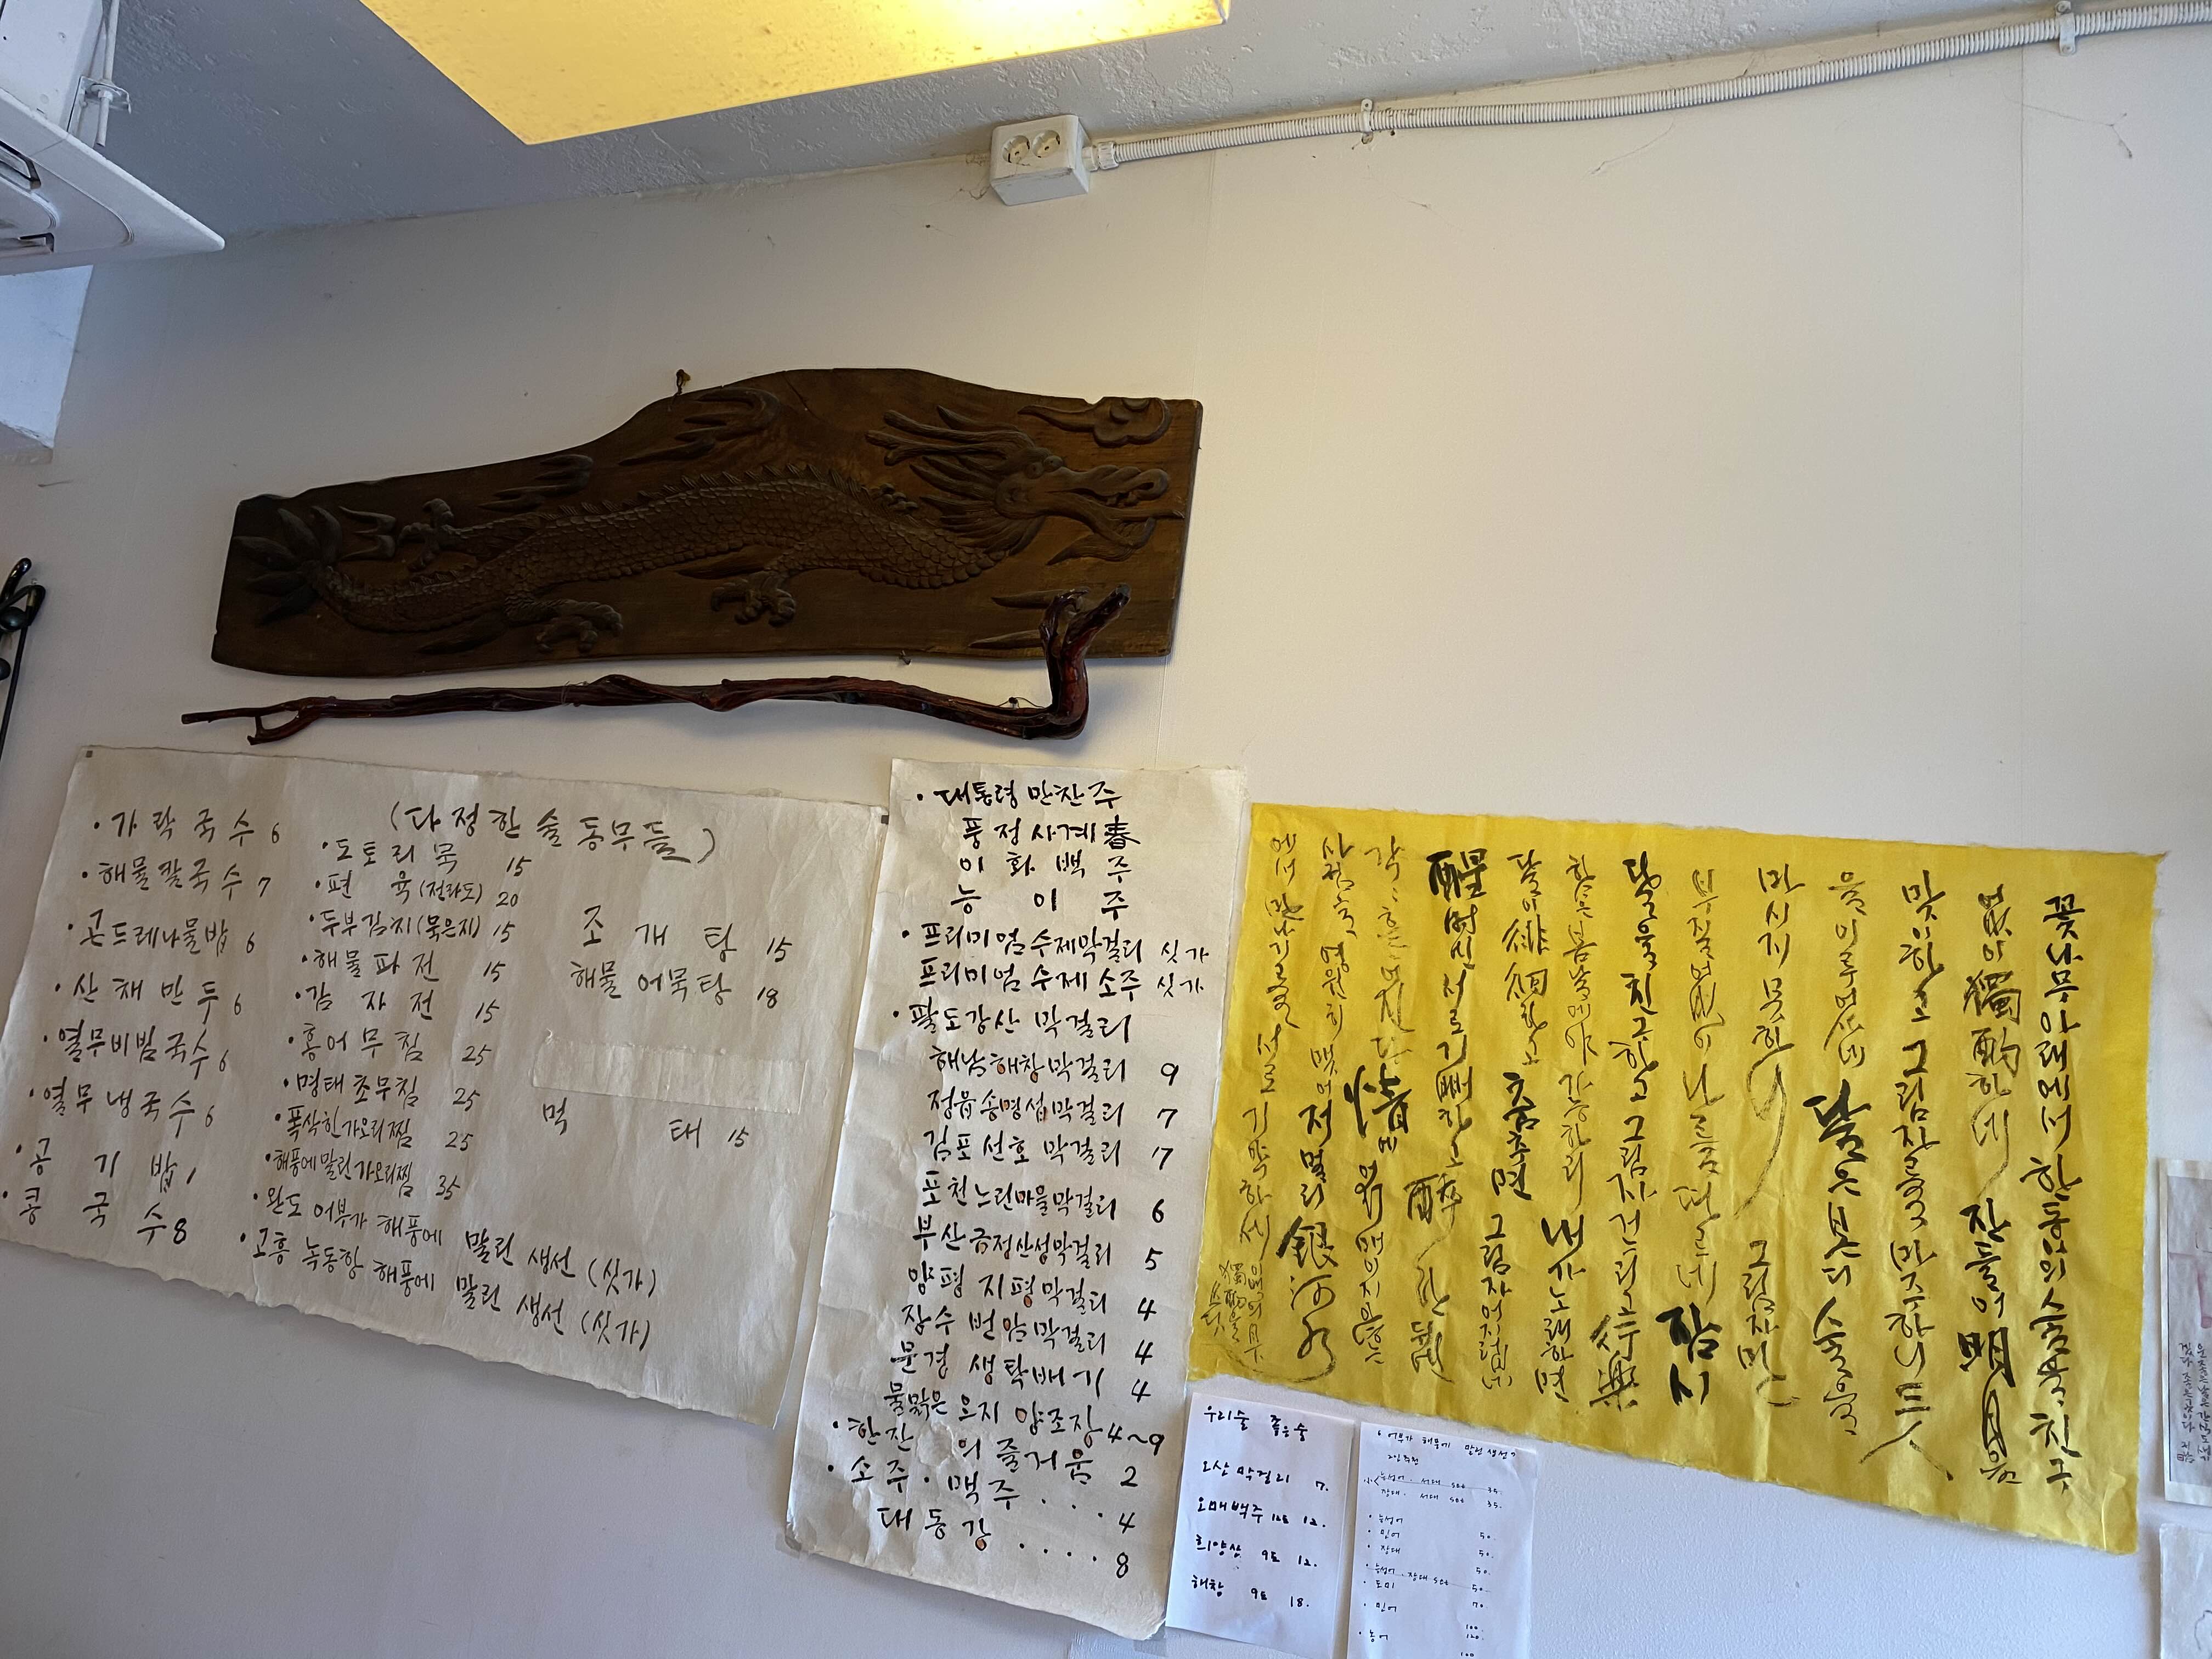 · 가락국수 6
· 해물칼국수 7
· 곤드레나물밥 6
· 산채만두 6
· 열무비빔국수 6
· 열무냉국수 6
· 공기밥 1
· 콩국수 8
(다정한 술동무들)
· 도토리묵 15
· 편육(전라도) 20
· 두부김치(묵은지) 15
· 해물파전 15
· 감자전 15
· 홍어무침 25
· 명태초무침 25
· 폭삭한가오리찜 25
· 해풍에말린가오리찜 35
· 완도 어부가 해풍에 말린 생선 (싯가)
· 고흥 녹동항 해풍에 말린 생선 (싯가)
조개탕 15
해물어묵탕 18
먹태 15
· 대통령만찬주
풍정사계春
이화백주
능이주
· 프리미엄수제막걸리 싯가
프리미엄수제소주 싯가
· 팔도강산 막걸리
해남해창막걸리 9
정읍송명섭막걸리 7
김포선호막걸리 7
포천느린마을막걸리 6
부산금정산성막걸리 5
양평 지평막걸리 4
장수 번암막걸리 4
문경 생탁배기 4
물맑은 으지 양조장 4~9
· 한잔의 즐거움 2
· 소주 · 맥주 . . . 4
대동강 . . . . 8
꽃나무아래에서 한동이의 술을 친구
없이 獨酌하네 잔들어 明月을
맞이하고 그림자를 마주하니 三人
을이루었네 달은본디 술을
마시지 못하 그림자만
부질없이 나를 따르네 잠시
달을친구하고 그림자 건
함은 봄날에야 가능하리 내가노래하면
달이 徘徊하고 춤추면 그림자어지러
醒時엔서로기뻐하고 醉
각 情에
사귐을 영원히 맺어 저멀리 銀河水
에서 서로 기약하세
우리술 좋은술
오산막걸리 7.
오매백주 12도 12.
희양산 9도 12.
해창 9도 18.
어부가 해풍에 말린생선
2인추천
장대. 서대 set 35.
· 농성어
· 민어 50.
· 장대 50.
· 도미
· 민어 70.
· 농어